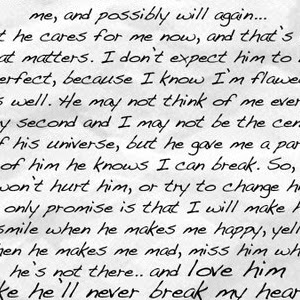 me, and possibly will again...
he cares for me now, and that's
matters. I don't expect him to
because I know I'm
well. He may not think of me
second and I may not be the
his universe, but he gave me a
of him he knows I can break. So,
won't hurt him, or try to change
only promise is that I will make
smile when he makes me happy,
he makes me mad, miss him
he's not there.. and love him
he'll never break my